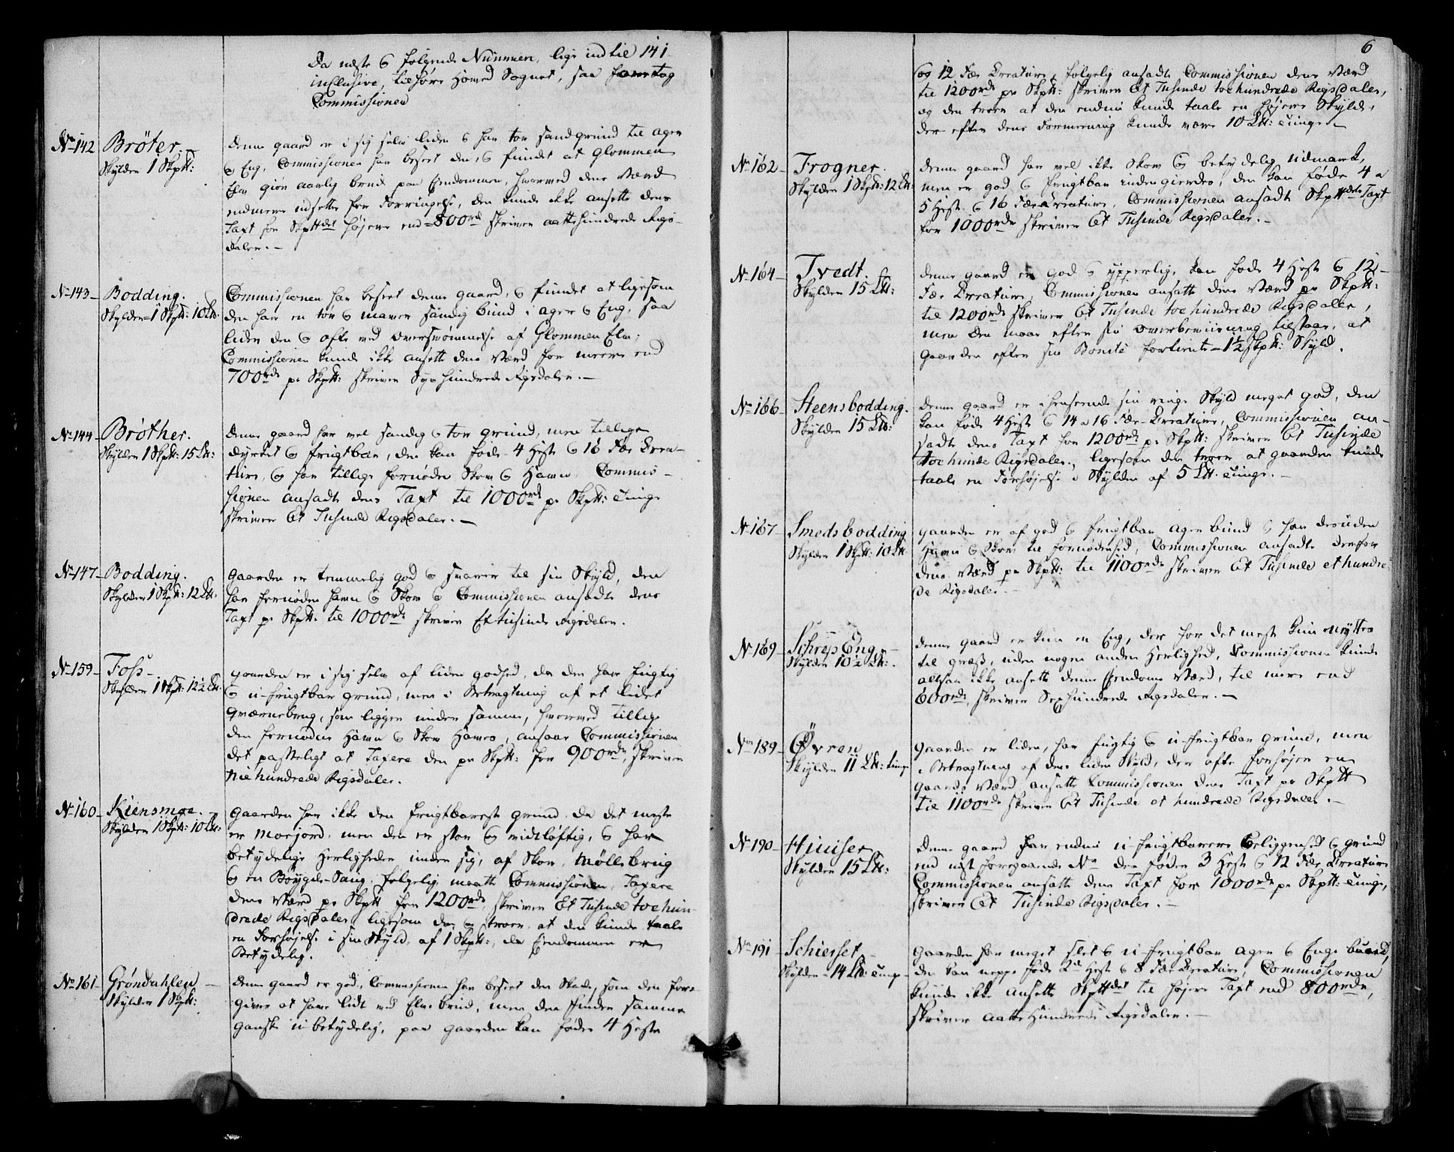 Da næste 6 følgende Nummere, lige ind til 141
inclusive, tilhøre Howed Sognet, saa foretog
Commissionen
No 142
Brøter.
Skylden 1 Skp℔:
denne gaard er i sig selv liden & har tør sandgrund til ager
& Eng, Commissionen har beseet den, & fundet at Glommen
Elv giør aarlig brud paa Eendommen, hvorved dens Værd
endmere udsættes for Forringelse, den kunde ikke ansætte dens
Taxt for Skp℔det højere end 800rd skriver aattehundrede Rigs-
daler.—
No 143
Bodding.
Skylden 1 Skp℔: 10 L℔:
Commissionen har beseet denne gaard, & fundet at ligesom
den har en tør & maver sandig bund i ager & Eng, saa
lider den & ofte ved Oversvømmelse af Glommen Elv;
Commissionen kunde ikke ansætte dens Værd for meere end
700rd pr Skp℔: skriver Syv hundrede Rigsdaler.—
No 144
Brøther.
Skylden 1 Skp℔: 15 L℔:
Denne gaard har vel sandig & tør grund, men tillige
dyrket & frugtbar, den kan føde 4 Hest & 16 Fær Crea-
ture, & har tillige fornøden Skov & Havn. Commis-
sionen ansadte dens Taxt til 1000rd pr Skp℔: tunge
skriver Et Tusinde Rigsdaler.—
No 147
Bodding.
Skylden 1 Skp℔: 12 L℔:
Gaarden er temmelig god & svarer til sin Skyld, den
har fornøden Havn & Skov & Commissionen ansadte dens
Taxt pr Skp℔: til 1000rd skriver Et tusinde Rigsdaler.
No 159
Foss
Skylden 1 Skp℔: 12½ L℔:
gaarden er i sig selv af liden godhed, da den har fugtig
& ufrugtbar grund, men i Betragtning af et lidet
Qværnebrug, som ligger under samme, hvorved tillige
den fornødne Havn & Skov haves, ansaae Commissionen
det passeligt at Taxere den pr Skp℔: for 900rd, skriver
Nie hundrede Rigsdaler.
No 160
Kiensmoe.
Skylden 1 Skp℔: 10 L℔:
Gaarden har ikke den frugtbareste grund, da det meste
er Morjord, men den er stor & vidtløftig, & har
betydelige Herligheder under sig, af Skov, Møllebrug
& en Bøygde-Saug, følgelig maatte Commissionen Taxere
dens Værd pr Skp℔ for 1200rd, skriver Et Tusinde toe hun-
drede Rigsdaler, ligesom den & troer at den kunde taale
en Forhøjelse i sin Skyld, af 1 Skp℔:, da Eendommen er
Betydelig.
No 161
Grøndahlen
Skylden 1 Skp℔:
Denne gaard er god, Commissionen har beseet den Skade, som den fore-
giver at have lidt ved Elve brud, men den finder samme
ganske ubetydelig, paa gaarden kan fødes 4 Heste
6
og 12 Fær Creature, følgelig ansadte Commissionen dens Værd
til 1200rd pr Skp℔: skriver Et Tusinde toe hundrede Rigsdaler,
og den troer at den endnu kunde taale en højere Skyld,
der efter dens Formeening kunde være 10 L℔: tunge.—
No 162
Frogner.
Skylden 1 Skp℔: 12 L℔
denne gaard har vel ikke Skov & betydelig udmark,
men er god & frugtbar inden gierdes, den kan føde 4 a
5 Hest & 16 Fær Creature. Commissionen ansadt Skp℔dets Taxt
for 1000rd skriver Et Tusinde Rigsdaler.—
No 164
Tvedt.
Skylden 15 L℔:
denne gaard er god & ypperlig, kan føde 4 Hest & 12
Fær Creature, Commissionen ansatte dens Værd pr Skp℔:
til 1200rd skriver Et Tusinde toe hundrede Rigsdaler,
men den maae efter sin Overbeviisning tilstaae, at
gaarden efter sin Bonité fortiente 1½ Skp℔: Skyld.
No 166
Steensbodding.
Skylden 15 L℔:
denne gaard er i henseende sin ringe Skyld meget god, den
kan føde 4 Hest & 14 a 16 Fær Creature, Commissionen an-
sadte dens Taxt for 1200rd pr Skp℔: skriver Et Tusinde
toehunde Rigsdaler, ligesom den troer at gaarden kunde
taale en Forhøjelse i Skylden af 5 L℔ tunge.—
No 167
Smedsbodding
Skylden 1 Skp℔: 10 L℔
gaarden er af god & frugtbar ager bund & har desuden
Havn & Skov til fornødenhed, Commissionen ansadte derfor
dens Værd pr Skp℔: til 1100rd skriver Et Tusinde et hundre-
de Rigsdaler.—
No 169
Schrep Eng
Skylden 10½ L℔:
denne gaard er kun en Eng, der for det meste kun nyttes
til græs, uden nogen anden Herlighed, Commissionen kunde
altsaa ikke ansætte denne Eendoms Værd, til mere end
600rd, skriver Sex hundrede Rigsdaler.—
No 189
Øvren
Skylden 11 L℔: tung
Gaarden er liden, har fugtig & ufrugtbar grund, men
i Betragtning af dens liden Skyld, der ofte forhøjer en
gaards Værd, ansatte Commissionen dens Taxt pr Skp℔
til 1100rd skriver Et Tusinde et hundrede Rigsdaler.—
No 190
Huuser
Skylden 15 L℔:
Denne gaard har endnu ufrugtbarere Beliggenhed & grund
end nest foregaaende No den føder 3 Hest & 12 Fær Creature
Commissionen ansatte denne Taxt for 1000rd pr Skp℔: tunge,
skriver Et Tusinde Rigsdaler.—
No 191
Schieset
Skylden 14 L℔: tunge
Gaarden har meget slet & ufrugtbar ager & Enge bund,
den kan neppe føde 2 Hest & 8 Fær Creature, Commissionen
kunde ikke ansætte Skp℔det til højere Taxt end 800rd,
skriver aatte Hundrede Rigsdaler.—